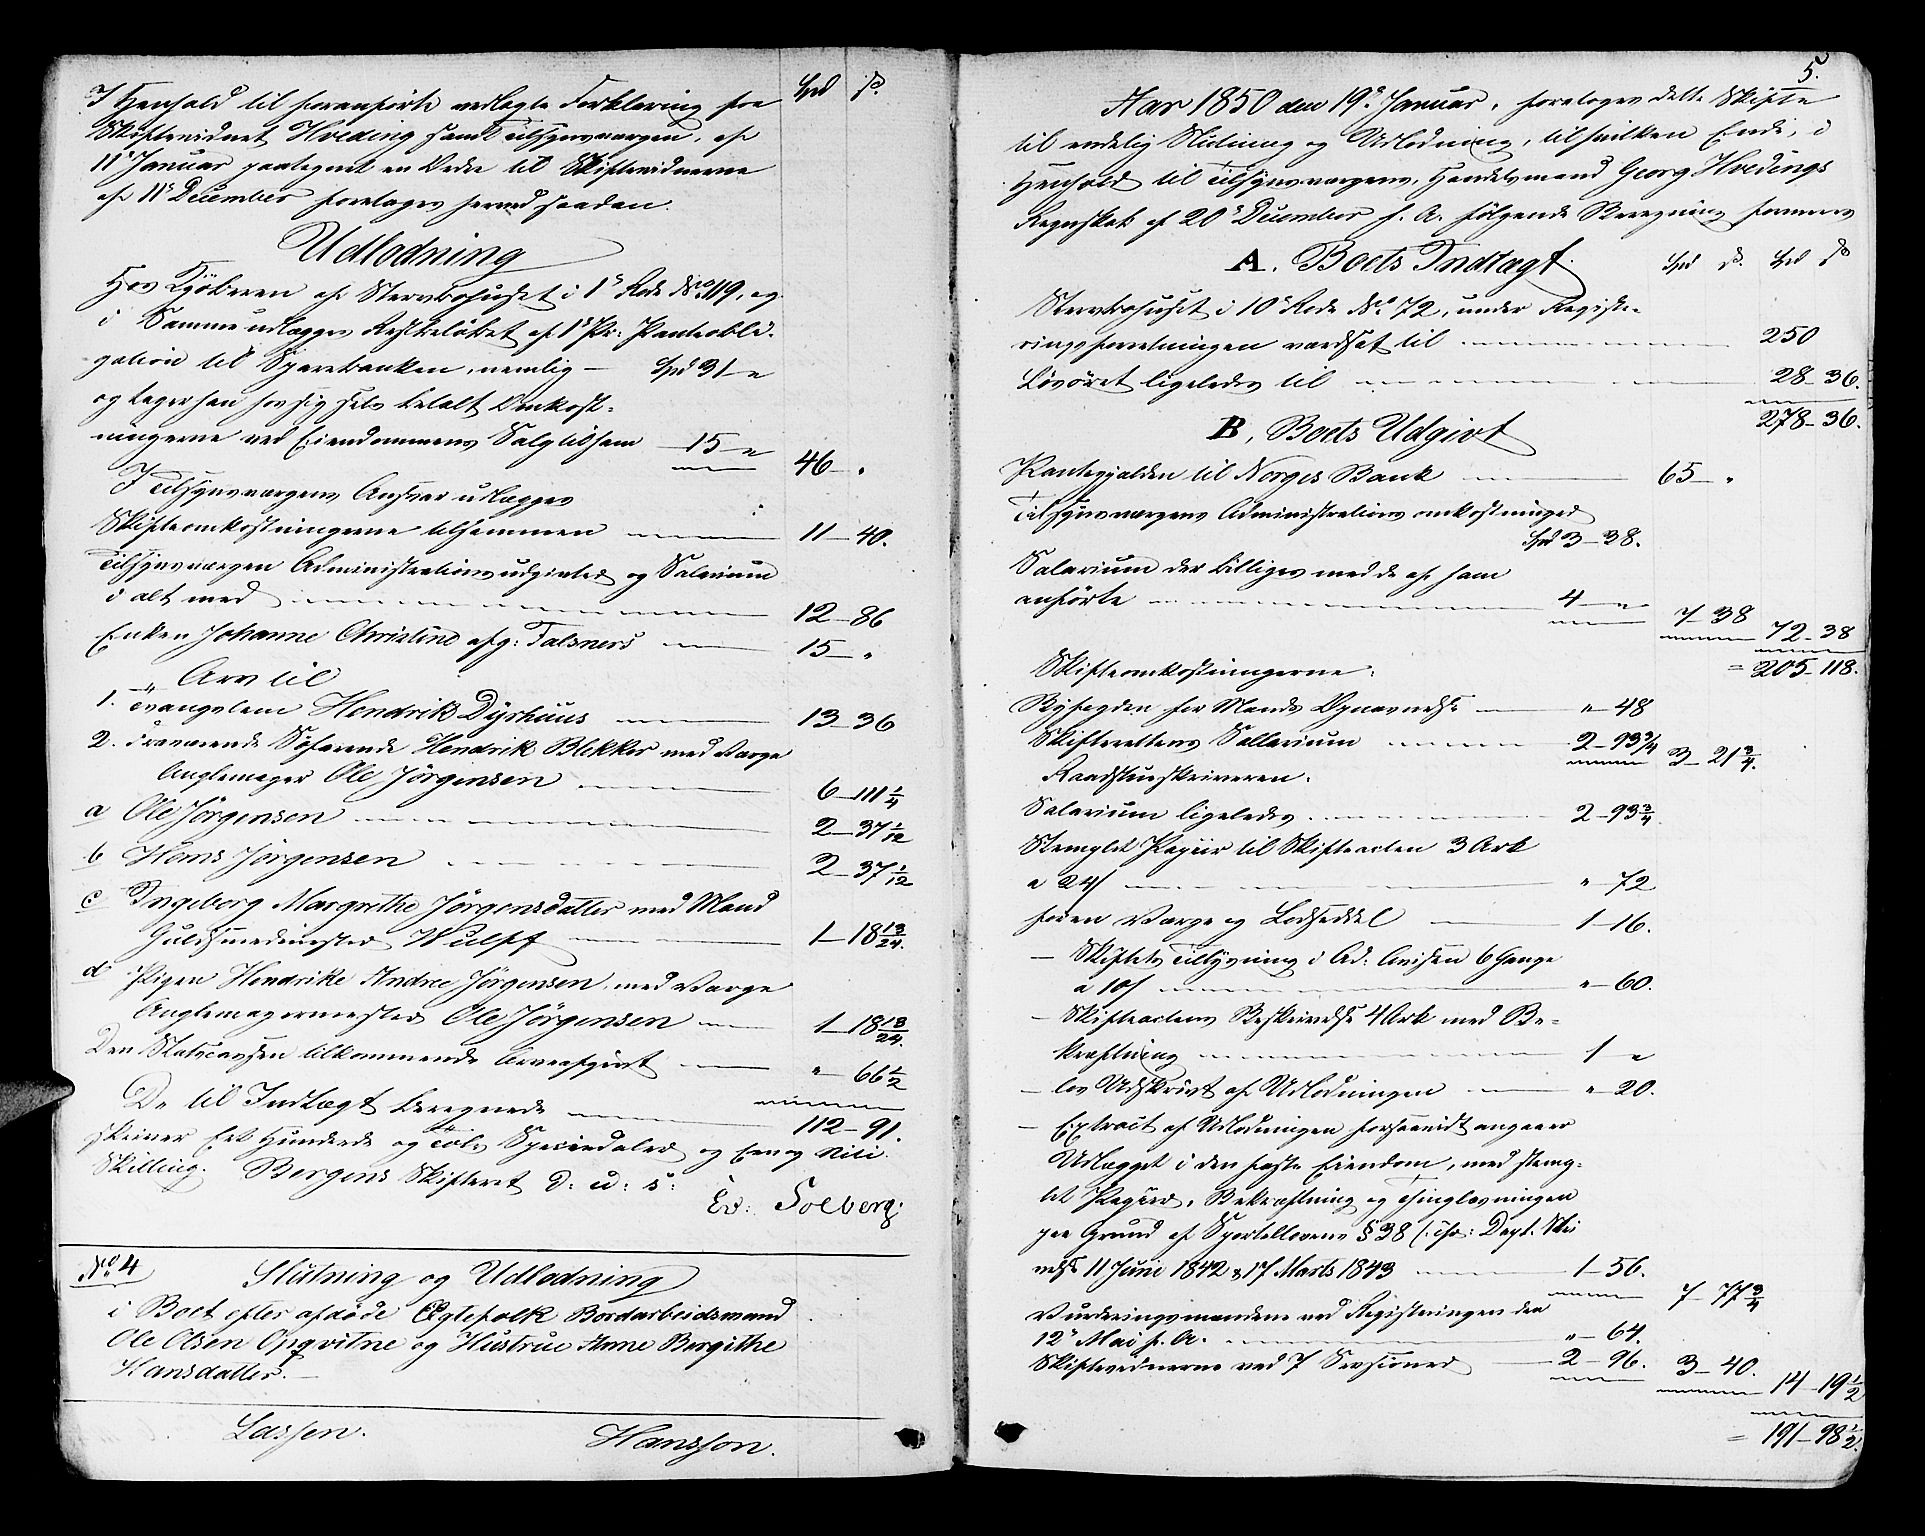 I Henhold til foranførte vedlagte Forklaring fra Spd s.
Skiftevidnet Hveding samt Tilsynsværgen, af
11te Januar paategnet en Ordre til Skiftevidnerne
af 11te December foretages herved saadan
Udlodning
Hos Kjøberen af Stervbohuset i 1ste Rode No 119, og
i Samme udlægges Restbeløbet af 1ste Pr: Panteobli-
gation til Sparebanken, nemlig - Spd 31 - "
og tager han hos sig selv betalt Omkost-
ningerne ved Eiendommens Salg tilsam 15 - " 46 - "
I Tilsynsværgens Ansvar udlægges
Skifteomkostningerne tilsammen 11 - 40.
Tilsynsværgen Administrationsudgivter og Salarium
i alt med 12 - 86
Enken Johanne Christine afg: Falsners 15 - "
Arv til
1. Svangeren Hendrik Dyrhuus 13 - 36
2. Fraværende Søfarende Hendrik Blekker med Værge
Anglemager Ole Jörgensen 6 - 111 1/4
a Ole Jörgensen 2 - 37 1/12
b Hans Jörgensen 2 - 37 1/12
c Ingeborg Margrethe Jörgensdatter med Mand
Guldsmedmester Wulff 1 - 18 13/24.
d Pigen Hendrikke Andrea Jörgensen, med Værge
Anglemagermester Ole Jörgensen 1 - 18 13/24.
Den Statscassen tilkommende Arveafgivt " - 66 1/2
De til Indtægt beregnede 112 - 91.
skriver Eet Hundrede og Tolv Speciedaler og Een og Niti
Skilling. Bergens Skifteret d: u: s:
Ed: Solberg.
No 4 Slutning og Udlodning
i Boet efter afdøde Ægtefolk Bordarbeidsmand
Ole Olsen Opqvitne og Hustrue Anne Bergithe
Hansdatter.
Lassen. Hansson.
5.
Aar 1850 den 19de Januar, foretoges dette Skifte
til endelig Slutning og Udlodning, til hvilken Ende, i
Henhold til Tilsynsværgens, Handelsmand Georg Hvedings
Regnskab af 20de December f. A. følgende Beregning formeres
A. Boets Indtægt. Spd s. Spd s
Stervbohuset i 10de Rode No 72, under Registe-
ringsforretningen værdsat til 250
Løsøret ligeledes til 28 - 36.
278 - 36.
B, Boets Udgivt
Pantegjælden til Norges Bank 65 - "
Tilsynsværgens Administrations omkostninger
Spd 3 - 38.
Salarium der billiges med de af ham
anførte 4 - " 7 - 38 72 - 38
= 205 - 118.
Skifteomkostningerne:
Byfogden for Mands Opnævnelse " - 48
Skifterettens Sallarium 2 - 93 3/4 3 - 21 3/4.
Raadstueskriveren:
Salarium ligeledes 2 - 93 3/4.
Stemplet Papiir til Skifteacten 3 Ark
a 24s " - 72
for en Værge og Lodseddel 1 - 16.
- Skiftets Tillysning i Ad: Avisen 6 Gange
a 10s " - 60.
- Skifteactens Beskrivelse 4 Ark med Be-
kræftning 1 - "
- løs Udskrivt af Udlodningen " - 20.
- Extract af Udlodningen forsaavidt angaaer
Udlægget i den faste Eiendom, med stemp-
let Papiir, Bekræftning og Thinglæsningen
paa Grund af Sportellovens § 38 (: cfr: Dept. Skri
velse 11 Juni 1842 & 17 Marts 1843 1 - 56. 7 - 77 3/4
Vurderingsmændene ved Registreringen den
12te Mai f. A. " - 64.
Skiftevidnerne ved 7 Sessioner 2 - 96. 3 - 40. 14 - 19 1/2
= 191 - 98 1/2.